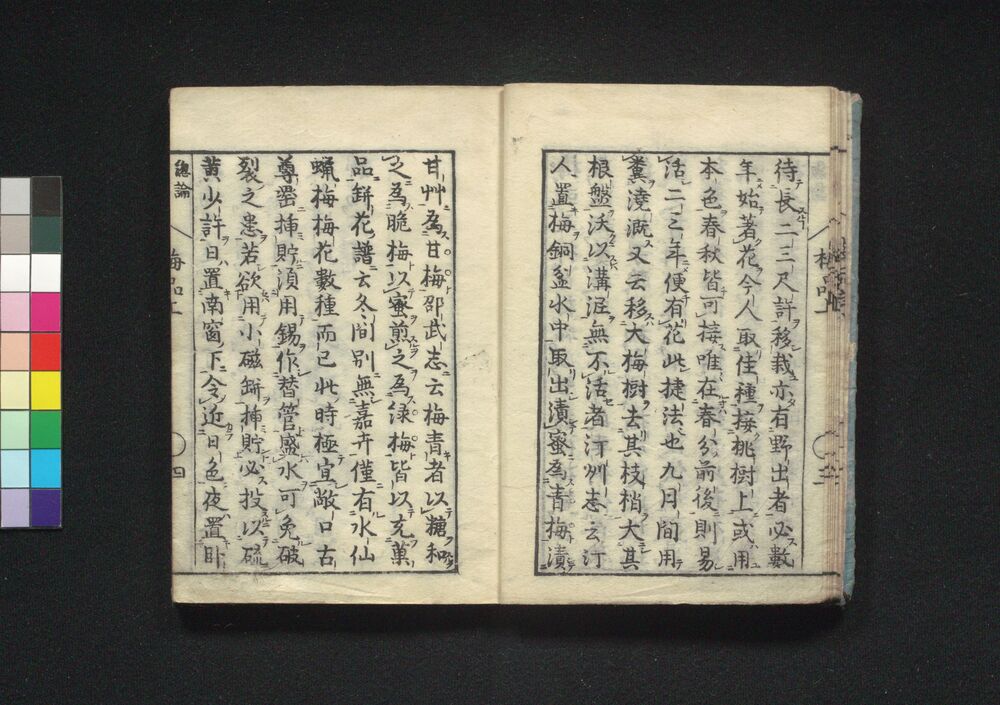 待長二三尺許移栽亦有野出者必數
年始著花今人取佳種接桃樹上或用
本色春秋皆可接唯在春分前後則易
活二三年便有花此捷法也九月間用
糞澆溉又云移大梅樹去其枝梢大其
根盤沃以溝泥無不活者汀州志云汀
人置梅銅盆水中取出漬蜜為青梅漬
甘艸為甘梅邵武志云梅青者以糖和
之為脆梅以蜜煎之為緑梅皆以充菓
品缾花譜云冬間别無嘉卉僅有水仙
蝋梅梅花數種而已此時極宜敞口古
尊罍挿貯須用錫作替管盛水可免破
裂之患若欲用小磁缾挿貯必投以硫
黄少許日置南窗下令近日色夜置卧
總論
梅品上
四